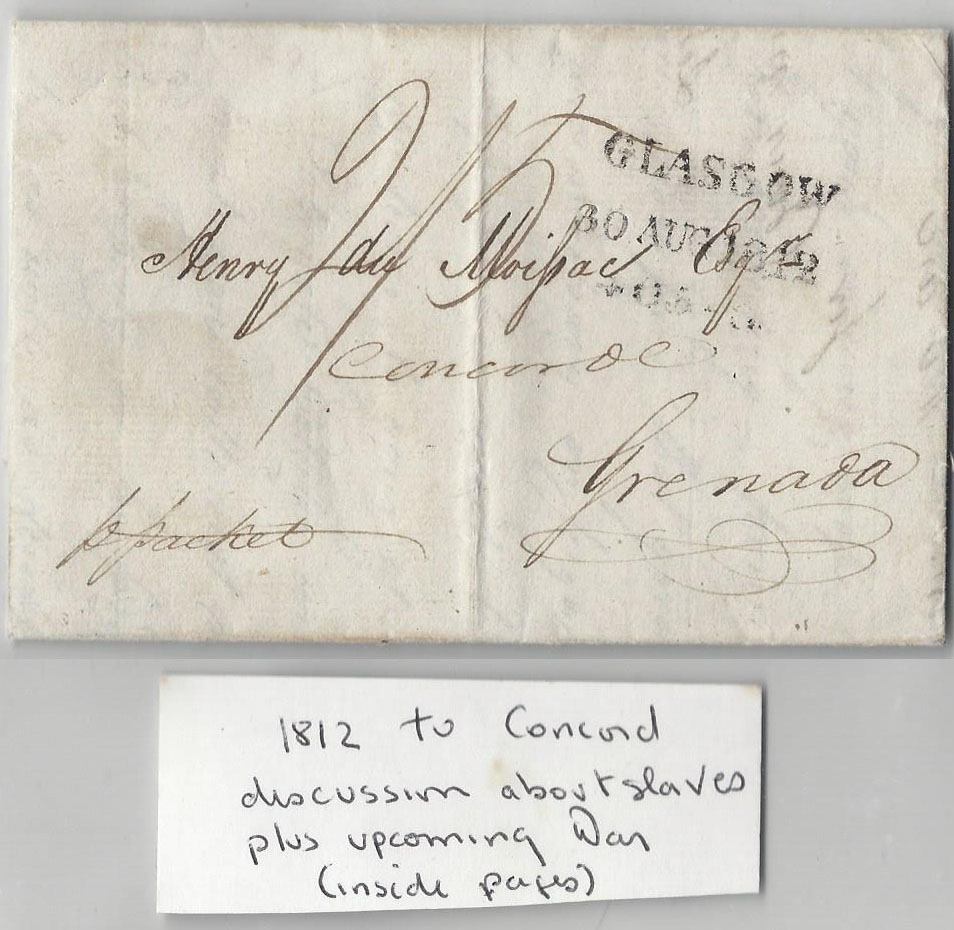 2/5
GLASGOW
30 AUG 1812
Henry du Moissac Esqr
Concorde
Grenada
p packet
1812 to Concord
discussion about slaves
plus upcoming War
(inside pages)